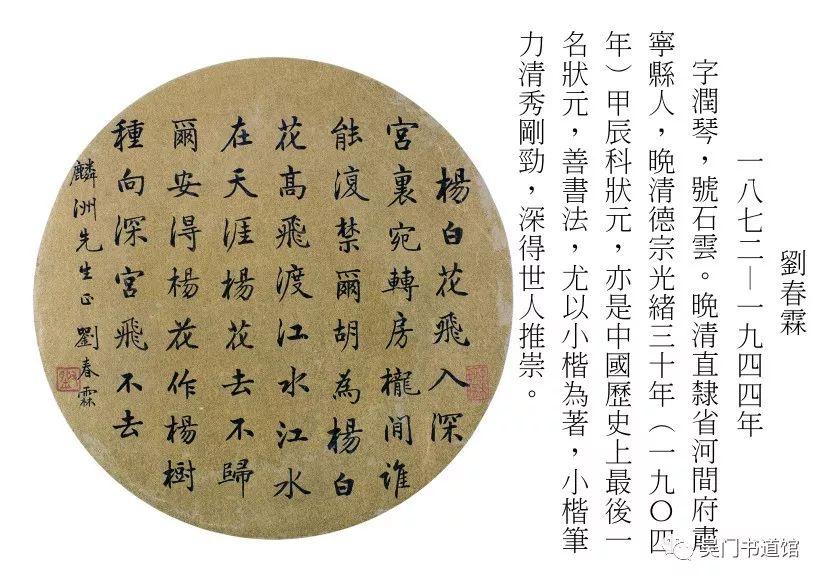 劉春霖
一八七二—一九四四年
字潤琴，號石雲。晚清直隸省河間府肅
寧縣人，晚清德宗光緒三十年（一九〇四
年）甲辰科狀元，亦是中國歷史上最後一
名狀元，善書法，尤以小楷為著，小楷筆
力清秀剛勁，深得世人推崇。
楊白花飛入深
宮裏宛轉房櫳間誰
能復禁爾胡為楊白
花高飛渡江水江水
在天涯楊花去不歸
爾安得楊花作楊樹
種向深宮飛不去
麟洲先生正 劉春霖
吴门书道馆